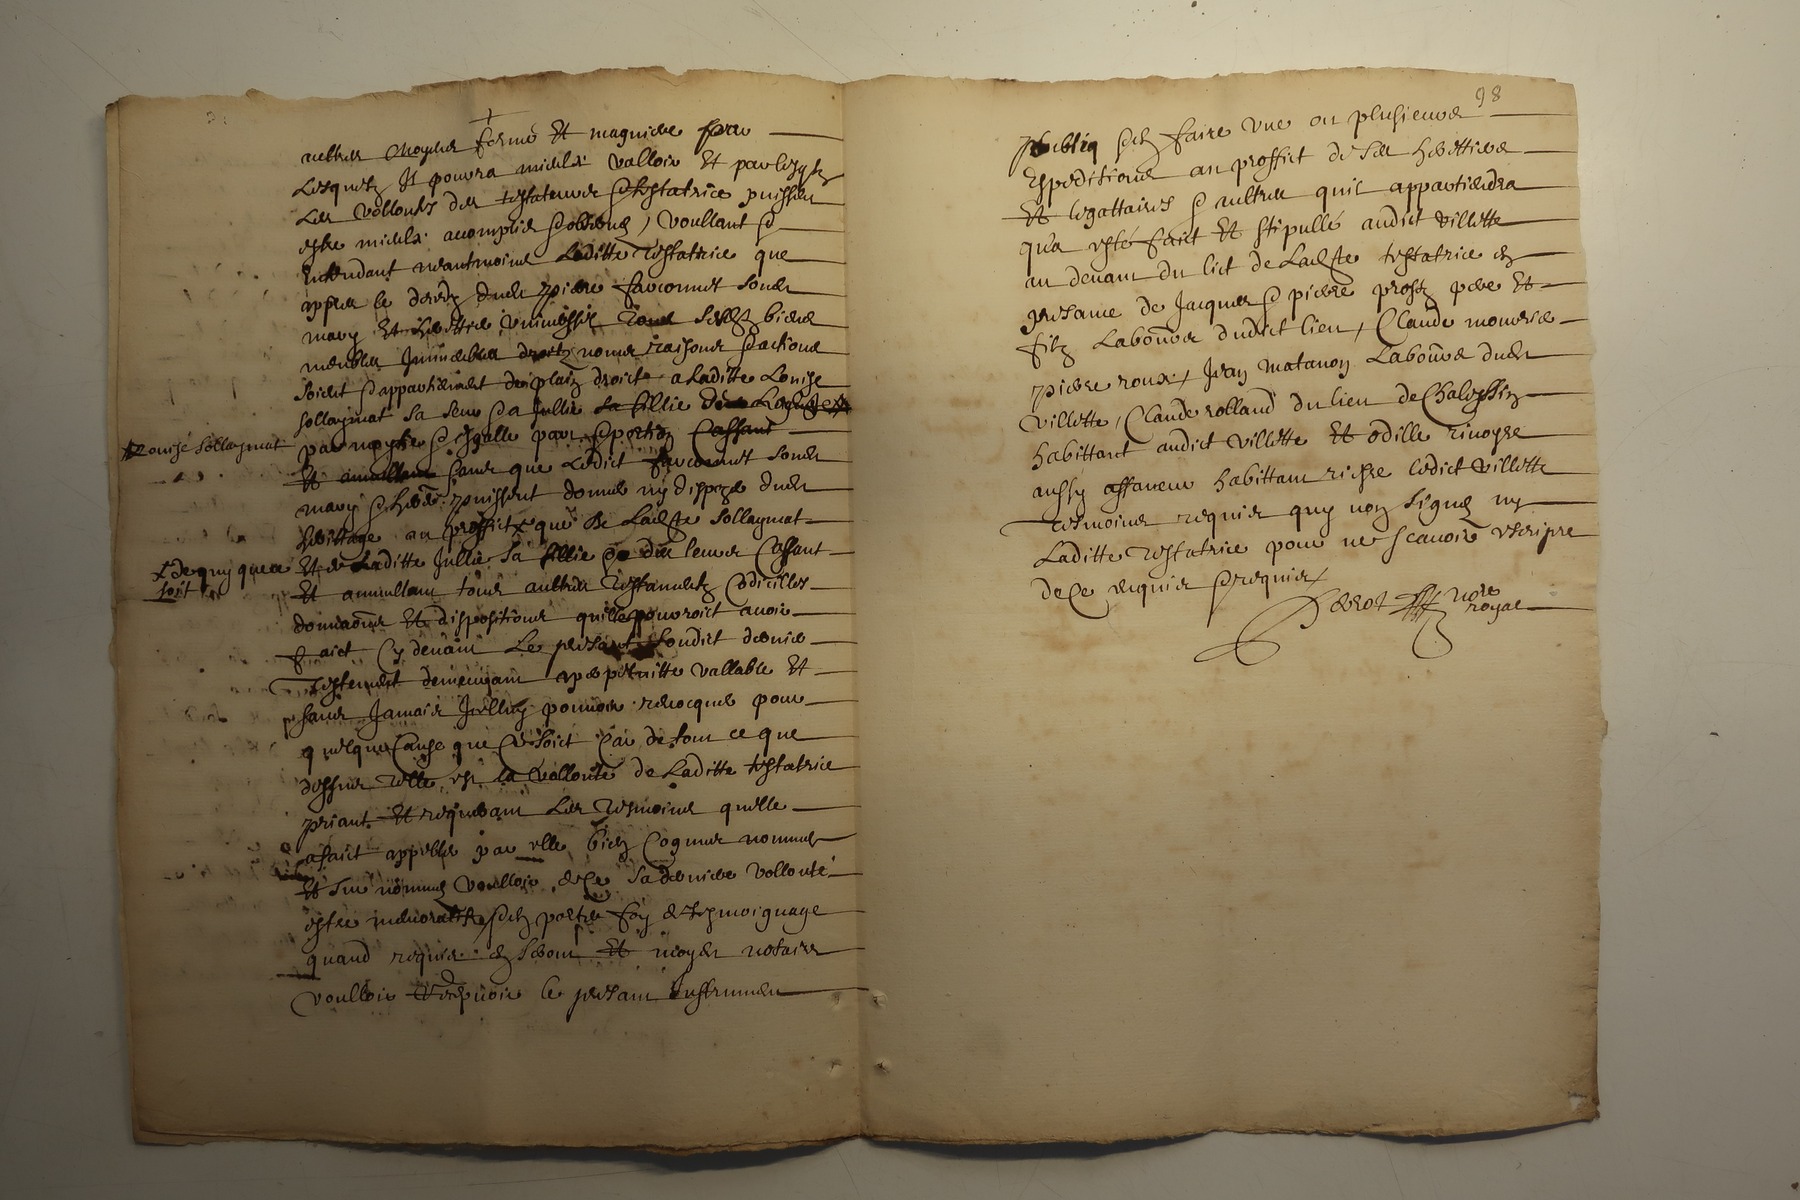 aultres moyens forme et maguiere par
lesquels Il pourra mieulx valloir et par lesqls
Les vollontés des testateurs & testatrice puissent
estre mieulx acomplis & obserués, voullant &
Entendant neantmoins Laditte testatrice que
appres le decedz dudt pierre fauconnet sondt
mary et herittier vniuersel tous sesdts biens
meubles Immeubles droitz noms raisons & actions
soient & appartiennent de plain droict a laditte Louise
sollaymat sa seur & a Jullie sa fillie
Louise sollaymat
par moytie & esgalle part & portion Cassant
Et sans que Ledict fauconnet sondt
mary & herer puissent donner ny dispozer dudt
herittage au proffict que de Ladte sollaymat
Et de Laditte Jullie sa fillie leurs Cassant
de quy que ce
soit
Et annullant tous aultres testaments Codicilles
donnaoñs et dispositions quelle pourroict auoir
faict Cy deuant Le presant sondict dernier
Testement demeurant a perpetuitte vallable et
sans Jamais pouuoir reuocquer pour
quelque Cause que Ce soict Car de tout ce que
dessus telle est la vollonté de Laditte testatrice
priant et requerant Les tesmoins quelle
a faict appeller par elle bien Cogneus nommes
et sur nommes voulloir de Ce sa derniere vollonté
estre memoratifs & en porter foy & tesmoignage
quand requis en seront et moyds notaire
voulloir recepuoir le presant Instrument
98
publiq & en faire vne ou plusieurs
Expeditions au proffict de ses herittiers
Et legattaires & aultres quil appartiendra
qua esté faict et stipullé audict villette
au deuant du lict de Ladte testatrice en
presance de Jacques & pierre prost pere et
filz Laboureurs dudict lieu, Claude mounier
pierre roux, Jean matanon Laboureurs dudt
villette, Claude rolland du lieu de Chalession
habittant audict villette et odille riuoyre
aussy affaneur habittant riesre ledict villette
Tesmoins requis quy nont signes ny
Laditte testatrice pour ne scauoir escripre
de Ce enquis & requis
Perrot nore
royal